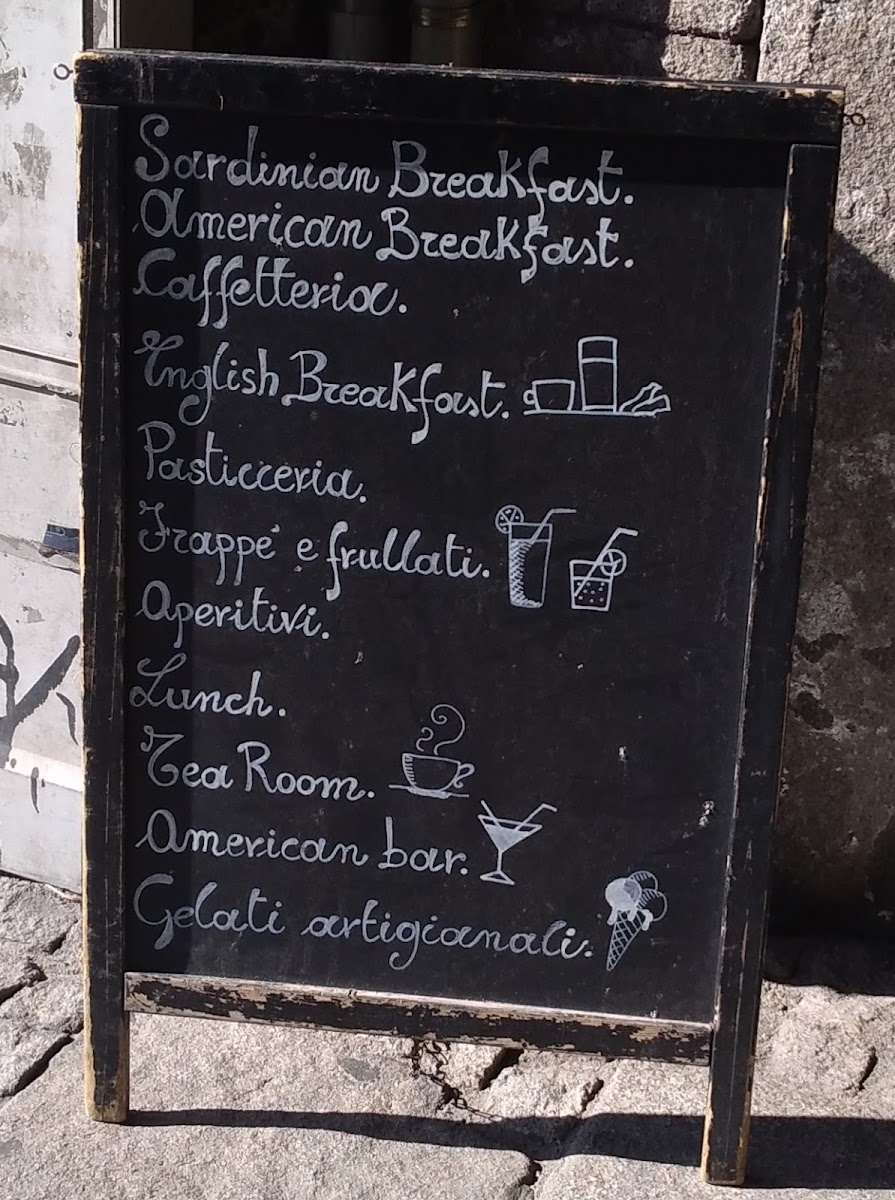 Sardinian Breakfast.
American Breakfast.
Caffetteria.
English Breakfast.
Pasticceria.
Frappé e frullati.
Aperitivi.
Lunch.
Tea Room.
American bar.
Gelati artigianali.